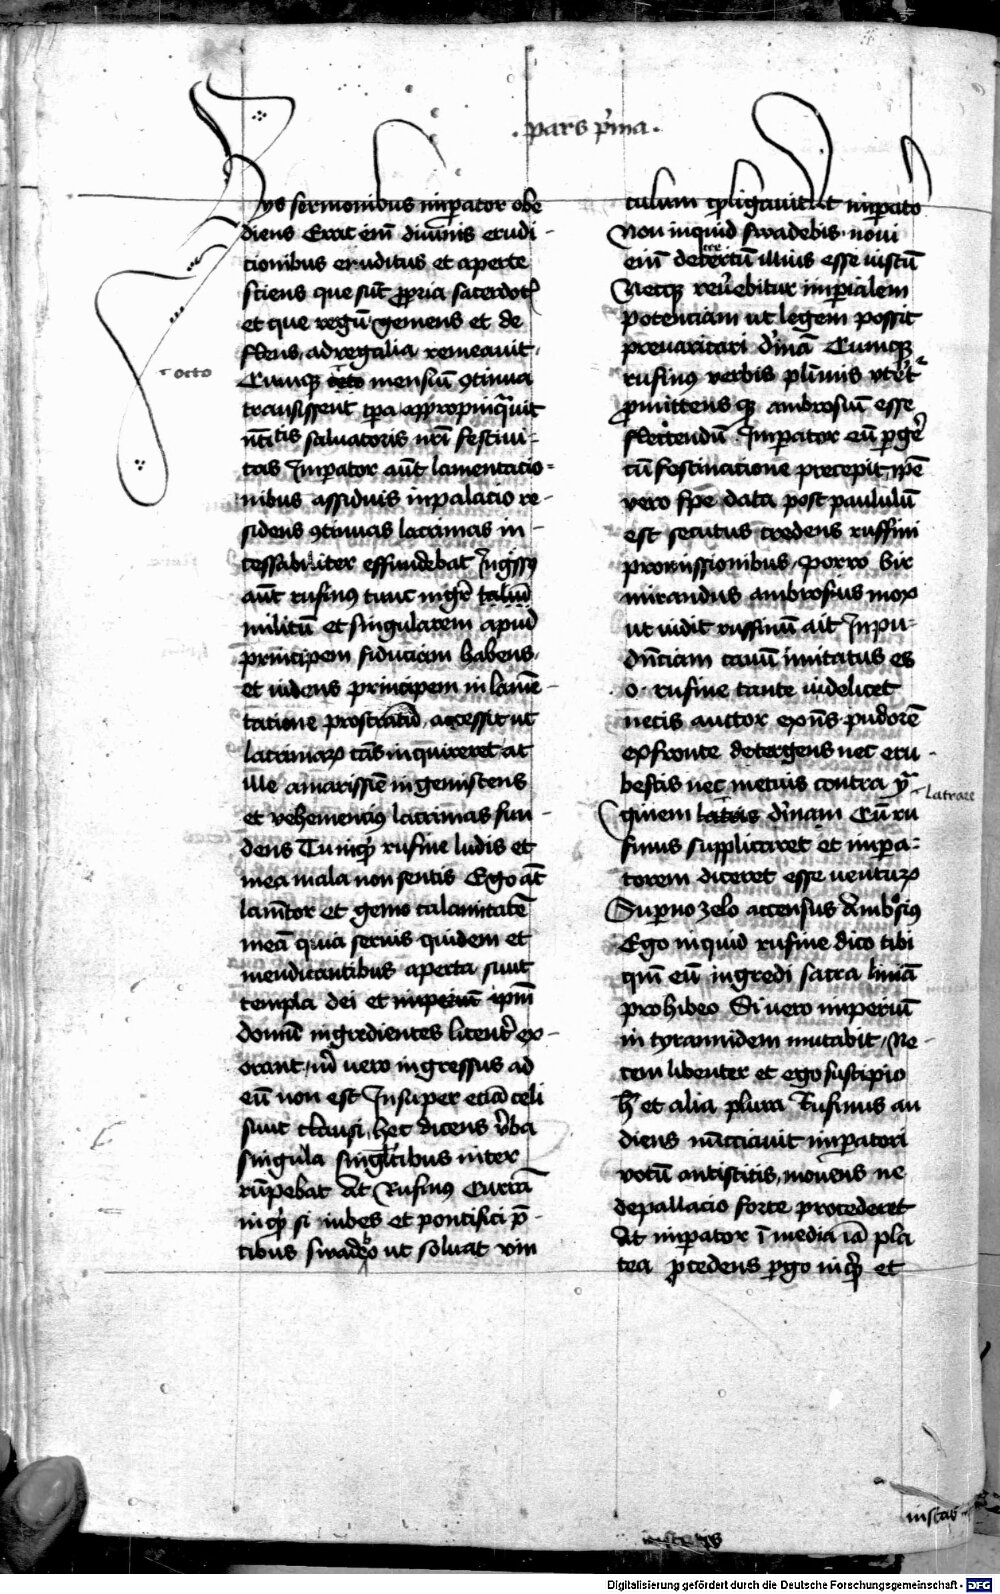 . pars p̄ma .
Hys sermonibus imperator obe
diens Erat em̄ diuinis erudi-
cionibus eruditus et aperte
sciens que sūt propria sacerdotū
et que regū gemens et de
flens, ad regalia remeauit.
Cumqz octo mensiū ꝯtinua
octo
transissent tp̄a appropinquit
nt̄itis saluatoris nr̄i festiui-
tas Imperator aūt lamentacio-
nibus assiduis in palacio re-
sidens ꝯtinuas lacrimas in-
cessabiliter effundebat Ingressus
aūt rufinus tunc mgr̄ taliū
militū et singularem apud
principem fiduciam habens.
et uidens principem in lamē-
tacione prostratū, accessit ut
lacrimarꝝ cās inquireret at
ille amarissīe ingemiscens
et vehemencius lacrimas fun-
dens Tu inqͥ rufine ludis et
mea mala non sentis Ego at̄
lamētor et gemo calamitatē
meā quia seruis quidem et
mendicantibus aperta sunt
templa dei et imperiū ipm̄
domū ingredientes licent̄ ex-
orant, m̄ vero ingressus ad
eū non est Insuper eciā celi
sunt clausi, hec dicens v̄ba
singula singultibus inter
rūpebat At Rufinus Curram
inqͥ si iubes et pontifici p̄-
cibus suadebo ut soluat vin
culum qͥ ligauit Et imperator
Non inquid suadebis. noui
em̄ decretū illius esse iustū
Necqz reuebitur imperialem
potenciam ut legem possit
preuaricari diuinā Cumqz
rufinus verbis plurimis vteret
promittens qz ambrosiū esse
flectendū Imperator eū pergere
cū festinacione precepit, ipē
vero spe data post paululū
est secutus credens ruffini
promissionibus, porro vir
mirandus ambrosius mox
ut uidit ruffinū ait Inpu-
dn̄ciam canū imitatus es
o. rufine tante uidelicet
necis auctor exn̄s pudorē
ex fronte detergens nec eru-
bescis nec metuis contra ym̄a
latrare
ginem latras diuinam Cū ru
finus supplicaret et impera-
torem diceret esse uenturꝝ
Superno zelo accensus Ambrosius
Ego inquid rufine dico tibi
qm̄ eū ingredi sacra liminā
prohibeo Si vero imperiū
in tyrannidem mutabit, Ne-
cem libenter et ego suscipio
h̄ et alia plura Rufinus au
diens nūcciauit imperatori
votū antistitis, mouens ne
de pallacio forte procederet
At imperator ī media iā pla
tea procedens pergo inqͥ et
iustas